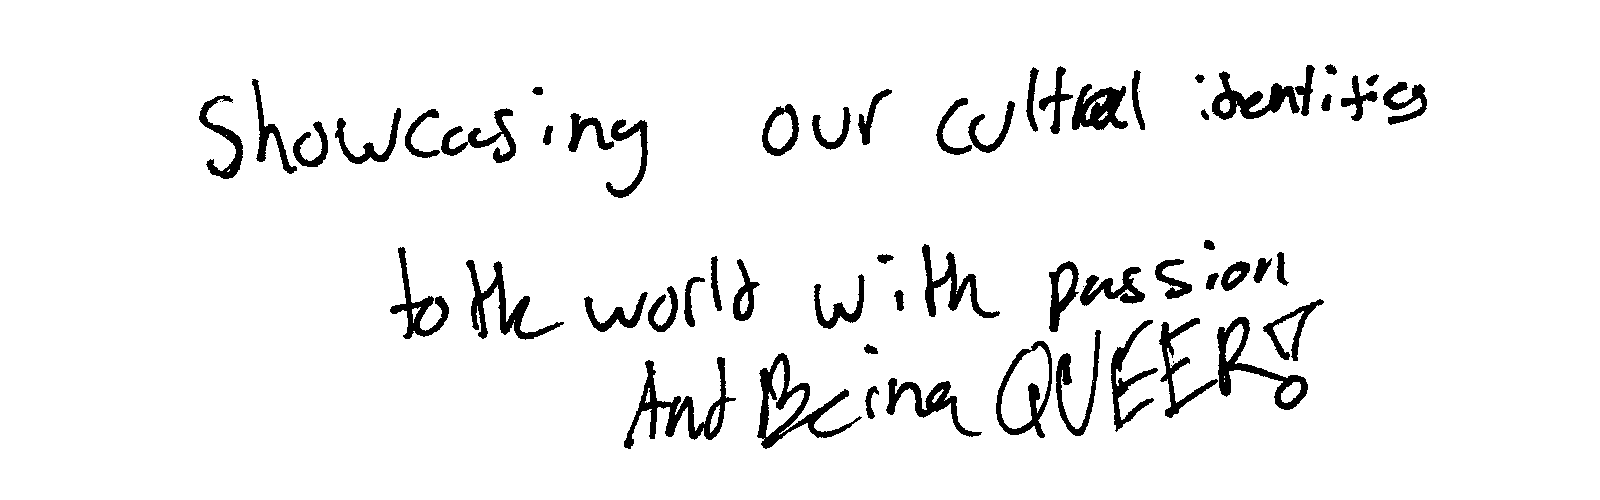 Showcasing our cultral identities
to the world with passion
And Being QUEER!